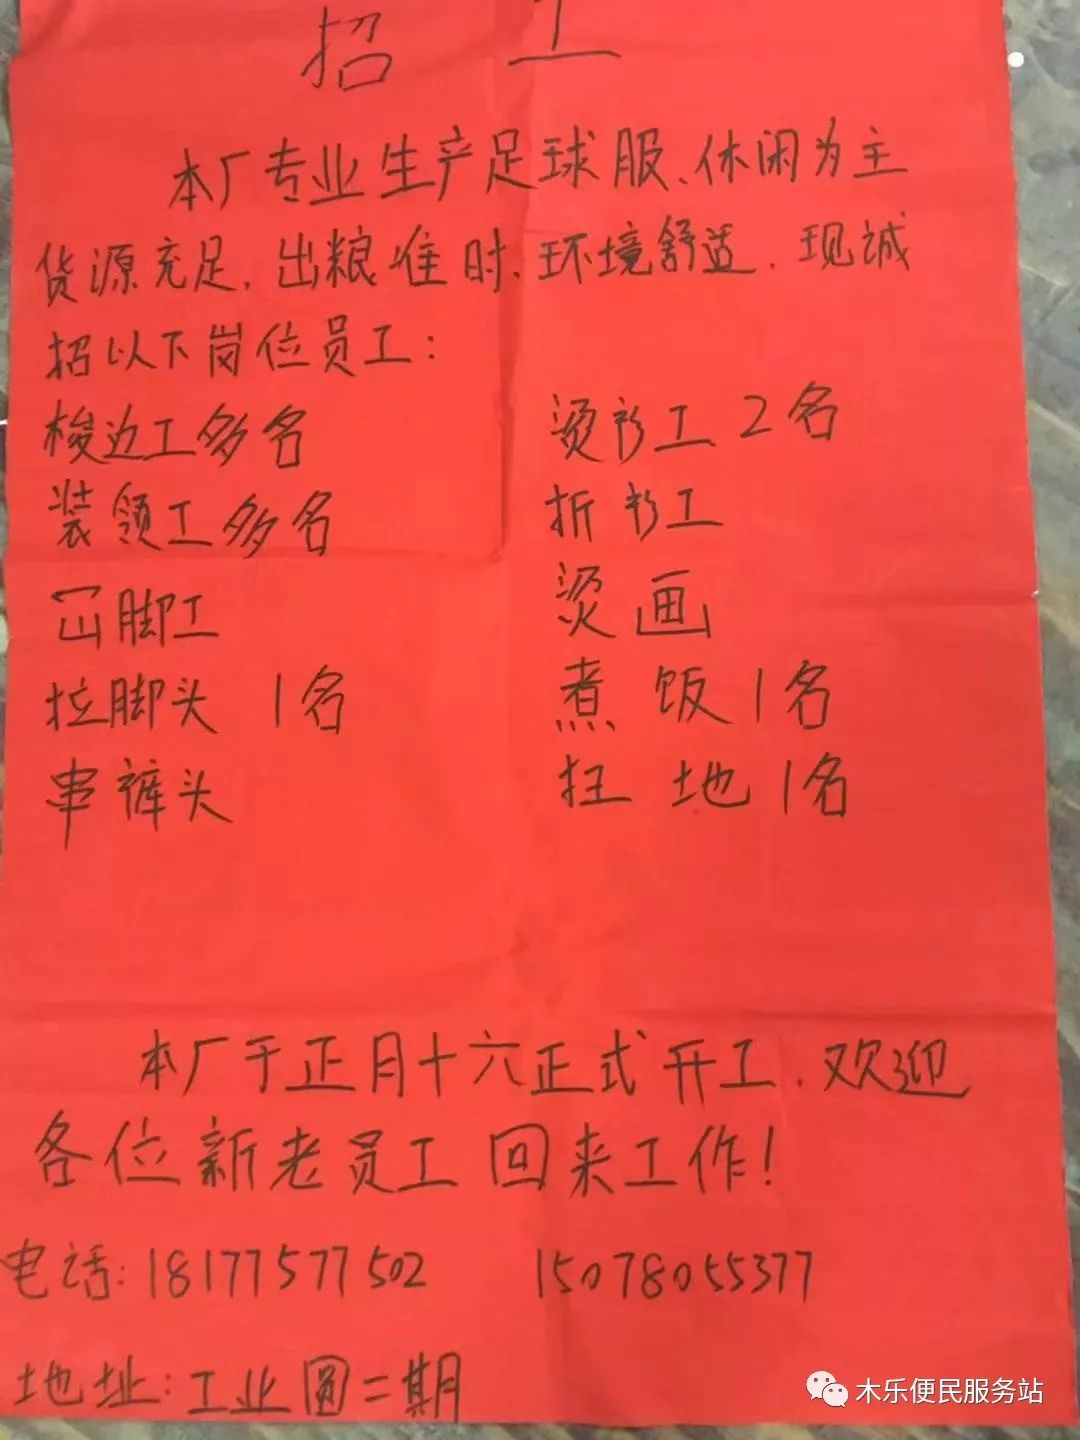 招 工
本厂专业生产足球服、休闲为主
货源充足,出粮准时,环境舒适,现诚
招以下岗位员工:
梭边工多名 烫衫工2名
装领工多名 折衫工
脚工 烫画
拉脚头 1名 煮饭1名
串裤头 扫地1名
本厂于正月十六正式开工,欢迎
各位新老员工回来工作!
电话:18177577502 15078055377
地址:工业园二期
木乐便民服务站